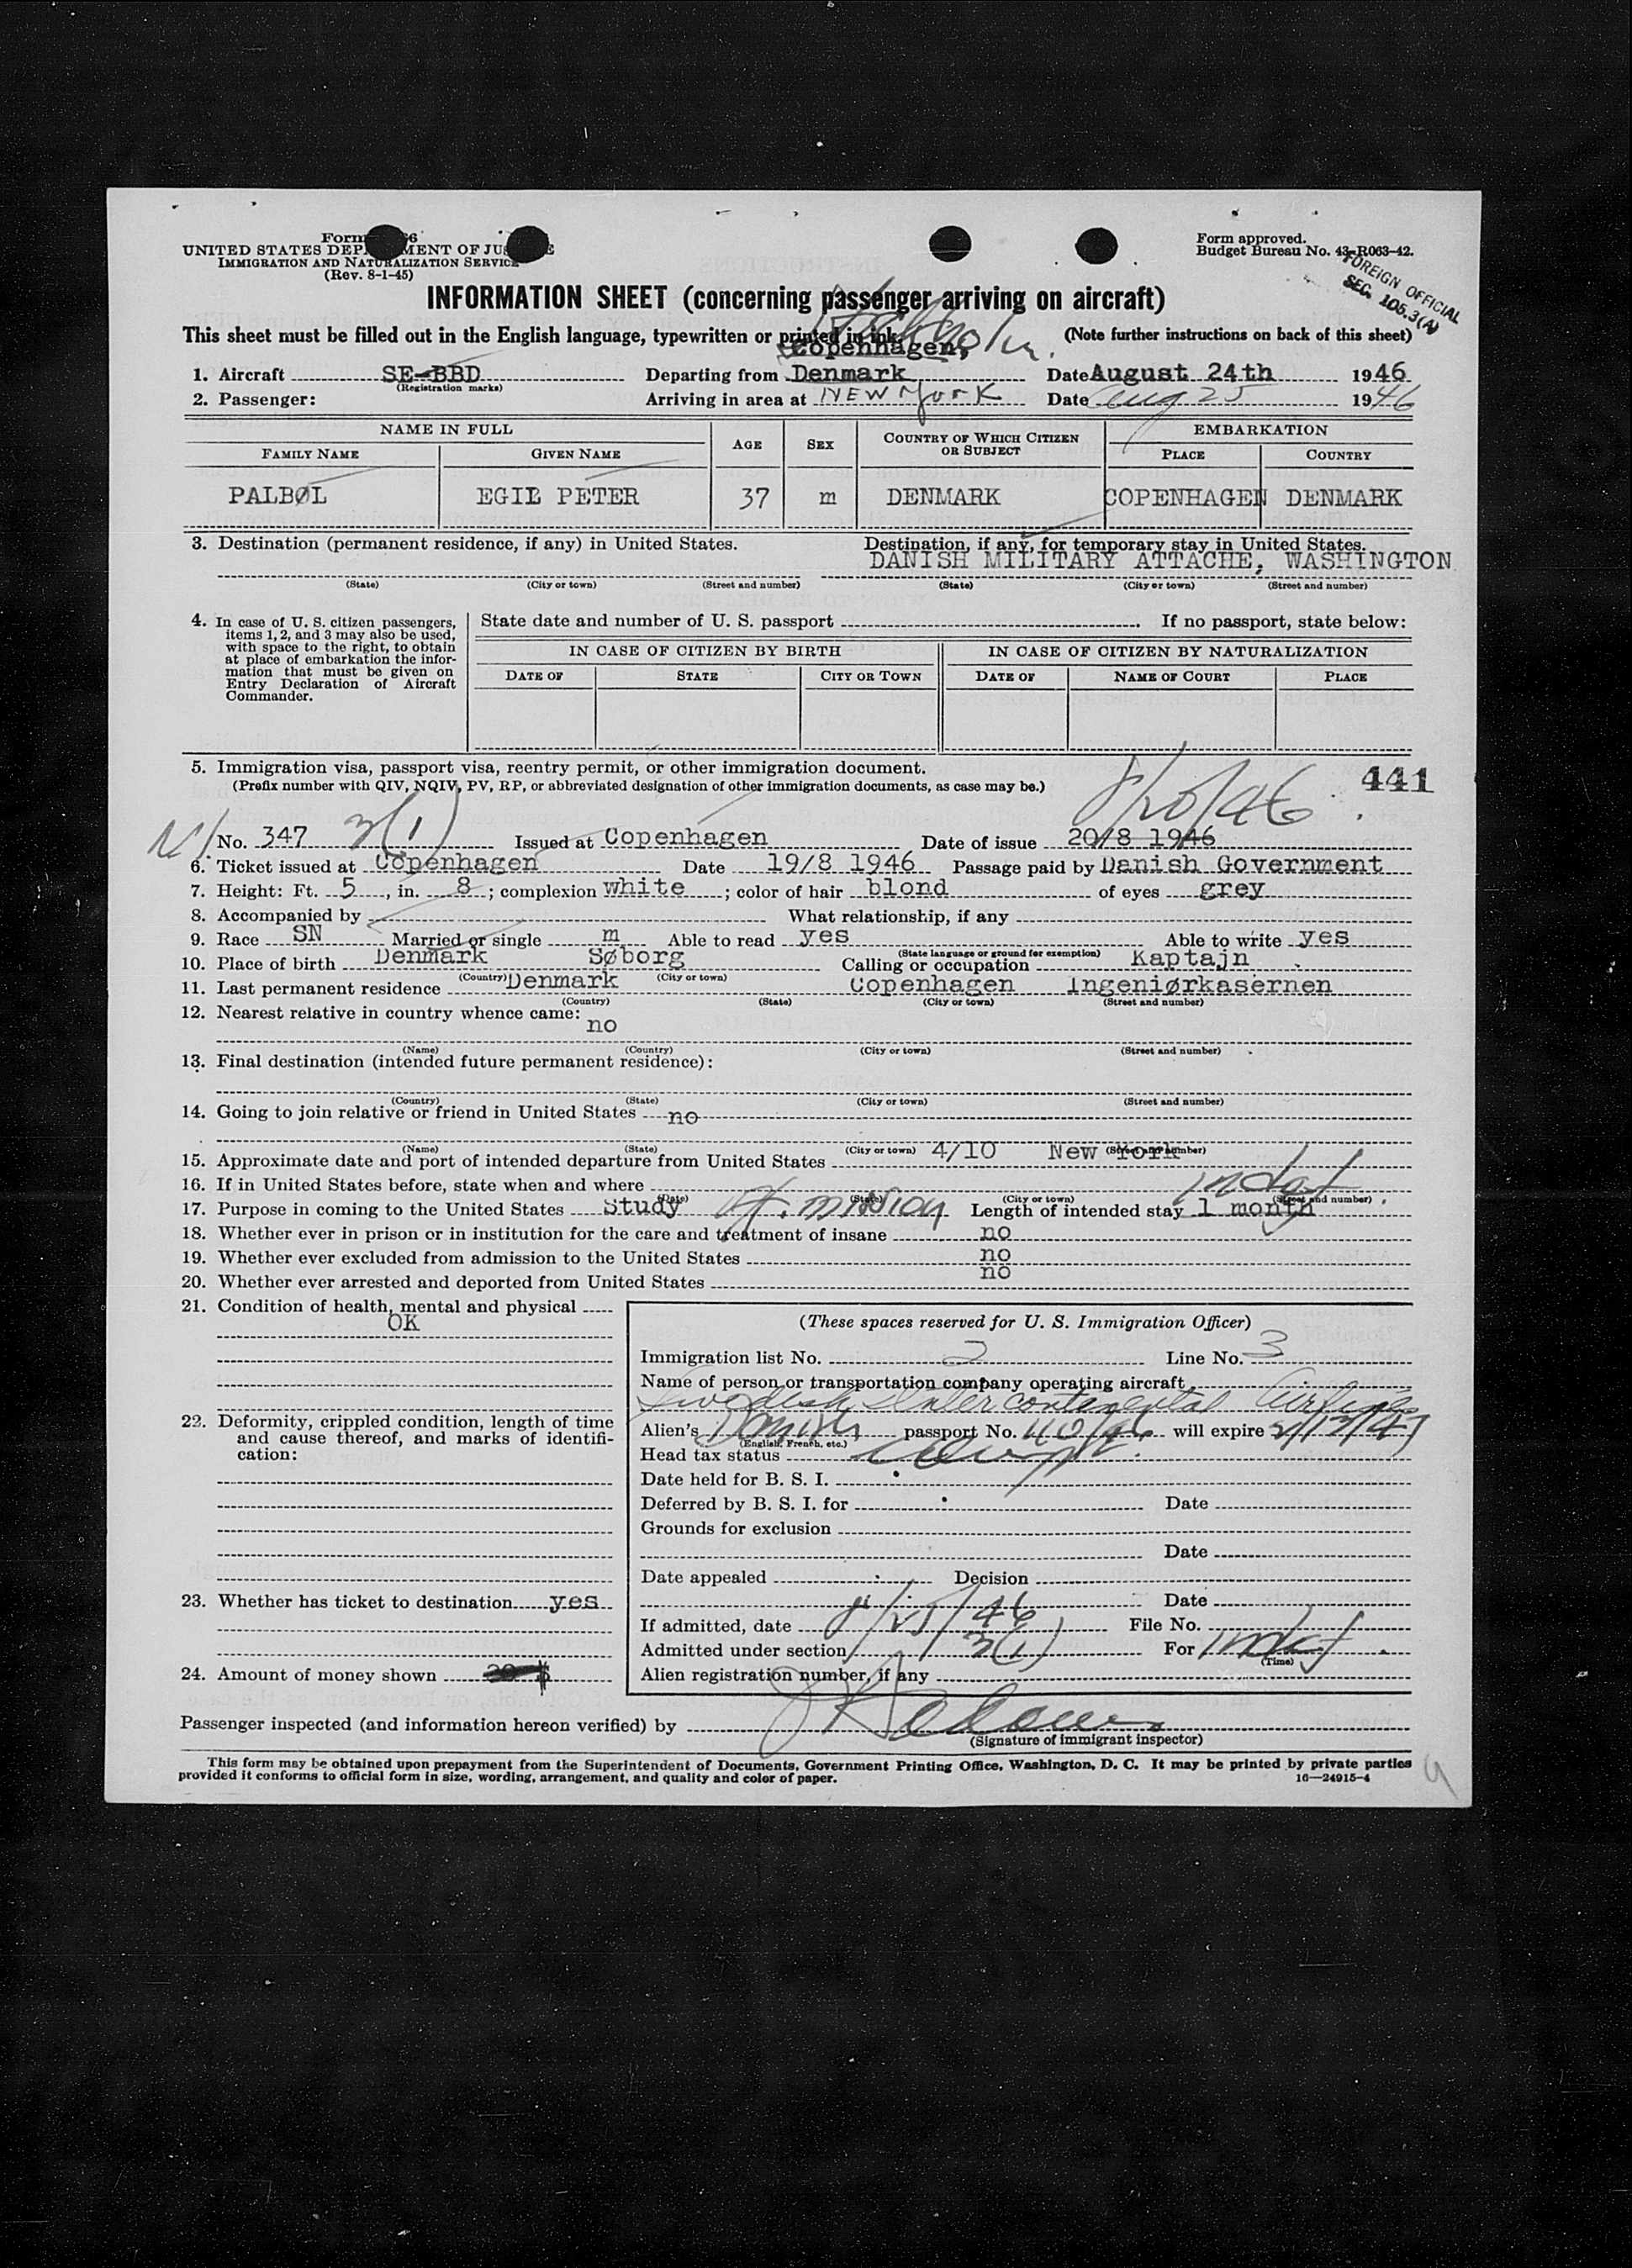 Form 6
UNITED STATES DEPARTMENT OF JUSTICE
IMMIGRATION AND NATURALIZATION SERVICE
(Rev. 8-1-45)
Form approved.
Budget Bureau No. 43-R063-42.
FOREIGN OFFICIAL
SEC. 105.3(A)
INFORMATION SHEET (concerning passenger arriving on aircraft)
This sheet must be filled out in the English language, typewritten or printed in ink. (Note further instructions on back of this sheet)
Stockholm.
Copenhagen,
1. Aircraft SE-BBD Departing from Denmark Date August 24th 1946
(Registration marks)
2. Passenger: Arriving in area at NEW YORK Date Aug 25 1946
NAME IN FULL AGE SEX COUNTRY OF WHICH CITIZEN OR SUBJECT EMBARKATION
FAMILY NAME GIVEN NAME PLACE COUNTRY
PALBØL EGIL PETER 37 m DENMARK COPENHAGEN DENMARK
3. Destination (permanent residence, if any) in United States. Destination, if any, for temporary stay in United States.
DANISH MILITARY ATTACHE, WASHINGTON
(State) (City or town) (Street and number) (State) (City or town) (Street and number)
4. In case of U. S. citizen passengers, items 1, 2, and 3 may also be used, with space to the right, to obtain at place of embarkation the information that must be given on Entry Declaration of Aircraft Commander.
State date and number of U. S. passport If no passport, state below:
IN CASE OF CITIZEN BY BIRTH IN CASE OF CITIZEN BY NATURALIZATION
DATE OF STATE CITY OR TOWN DATE OF NAME OF COURT PLACE
5. Immigration visa, passport visa, reentry permit, or other immigration document.
(Prefix number with QIV, NQIV, PV, RP, or abbreviated designation of other immigration documents, as case may be.)
8/20/46 441
No. 347 3(1) Issued at Copenhagen Date of issue 20/8 1946
6. Ticket issued at Copenhagen Date 19/8 1946 Passage paid by Danish Government
7. Height: Ft. 5, in. 8; complexion white; color of hair blond of eyes grey
8. Accompanied by What relationship, if any
9. Race SN Married or single m Able to read yes Able to write yes
(State language or ground for exemption)
10. Place of birth Denmark Søborg Calling or occupation Kaptajn
(Country) (City or town)
11. Last permanent residence Denmark Copenhagen Ingeniørkasernen
(Country) (State) (City or town) (Street and number)
12. Nearest relative in country whence came:
no
(Name) (Country) (City or town) (Street and number)
13. Final destination (intended future permanent residence):
(Country) (State) (City or town) (Street and number)
14. Going to join relative or friend in United States no
(Name) (State) (City or town) (Street and number)
15. Approximate date and port of intended departure from United States 4/10 New York
16. If in United States before, state when and where
(Date) (State) (City or town) (Street and number)
indef
17. Purpose in coming to the United States Study mission Length of intended stay 1 month
18. Whether ever in prison or in institution for the care and treatment of insane no
19. Whether ever excluded from admission to the United States no
20. Whether ever arrested and deported from United States no
21. Condition of health, mental and physical
OK
22. Deformity, crippled condition, length of time and cause thereof, and marks of identification:
23. Whether has ticket to destination yes
24. Amount of money shown
(These spaces reserved for U. S. Immigration Officer)
Immigration list No. 2 Line No. 3
Name of person or transportation company operating aircraft
Swedish Intercontinental Airlines
Alien's Danish passport No. will expire
(English, French, etc.)
Head tax status exempt
Date held for B. S. I.
Deferred by B. S. I. for Date
Grounds for exclusion
Date
Date appealed Decision
Date
If admitted, date 8/25/46 File No.
Admitted under section 3(1) For indef
(Time)
Alien registration number, if any
Passenger inspected (and information hereon verified) by
(Signature of immigrant inspector)
This form may be obtained upon prepayment from the Superintendent of Documents, Government Printing Office, Washington, D. C. It may be printed by private parties
provided it conforms to official form in size, wording, arrangement, and quality and color of paper. 16—24915-4